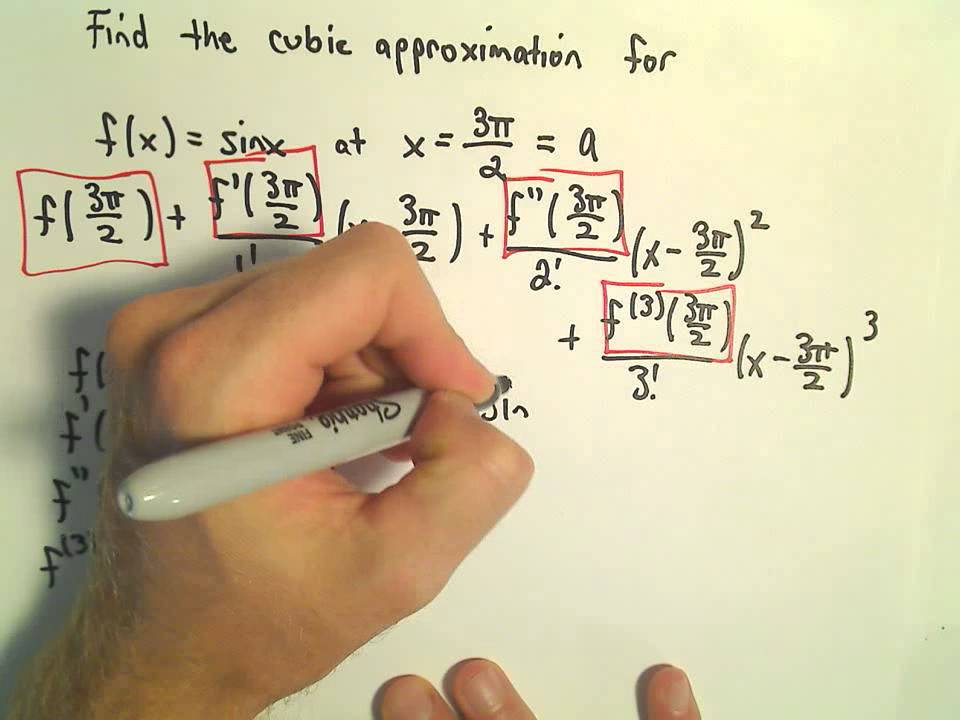 Find the cubic approximation for
f(x) = sinx at x = 3π/2 = a
f(3π/2) + f'(3π/2)/1! (x - 3π/2) + f''(3π/2)/2! (x - 3π/2)^2
+ f^(3)(3π/2)/3! (x - 3π/2)^3
f(
f'( sin
f''
f^(3)
Sharpie
FINE